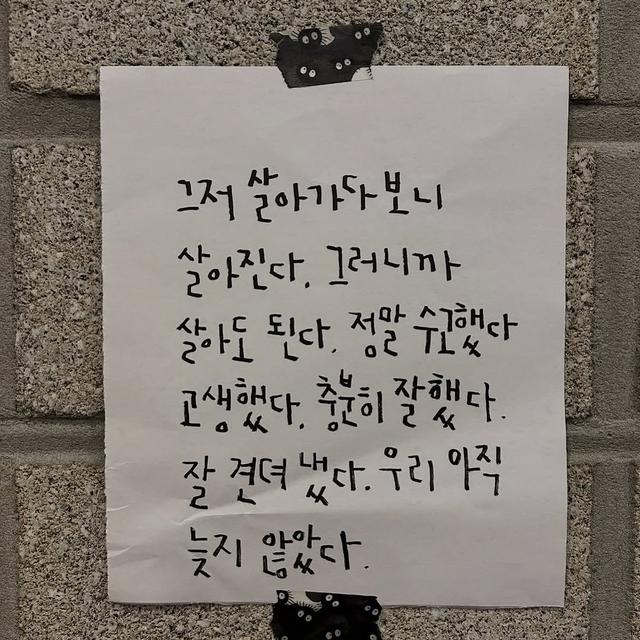 그저 살아가다보니
살아진다. 그러니까
살아도 된다. 정말 수고했다
고생했다. 충분히 잘했다.
잘 견뎌 냈다. 우리 아직
늦지 않았다.